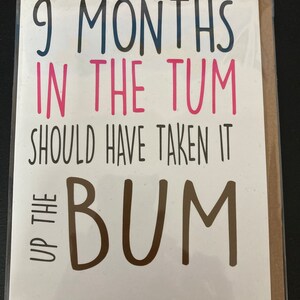 9 MONTHS
IN THE TUM
SHOULD HAVE TAKEN IT
UP THE BUM